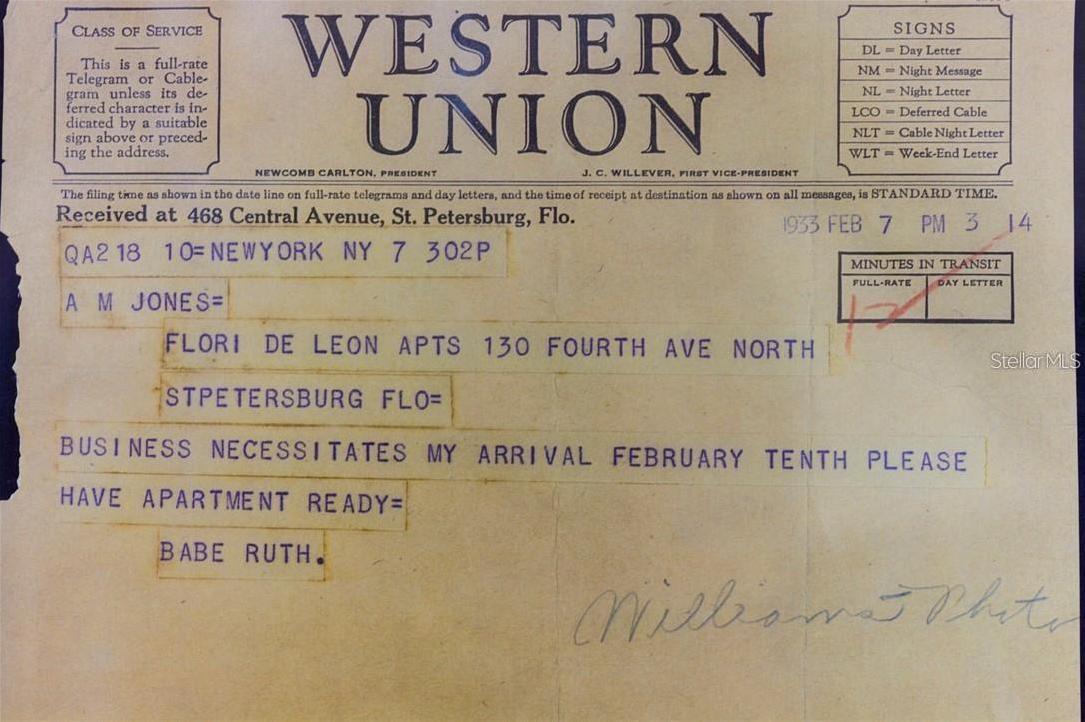 CLASS OF SERVICE
This is a full-rate
Telegram or Cable-
gram unless its de-
ferred character is in-
dicated by a suitable
sign above or preced-
ing the address.
WESTERN
UNION
NEWCOMB CARLTON, PRESIDENT
J. C. WILLEVER, FIRST VICE-PRESIDENT
SIGNS
DL = Day Letter
NM = Night Message
NL = Night Letter
LCO = Deferred Cable
NLT = Cable Night Letter
WLT = Week-End Letter
The filing time as shown in the date line on full-rate telegrams and day letters, and the time of receipt at destination as shown on all messages, is STANDARD TIME.
Received at 468 Central Avenue, St. Petersburg, Flo.
1933 FEB 7 PM 3 14
MINUTES IN TRANSIT
FULL-RATE DAY LETTER
12
QA218 10=NEWYORK NY 7 302P
A M JONES=
FLORI DE LEON APTS 130 FOURTH AVE NORTH
STPETERSBURG FLO=
BUSINESS NECESSITATES MY ARRIVAL FEBRUARY TENTH PLEASE
HAVE APARTMENT READY=
BABE RUTH.
Williams Photo
StellarMLS